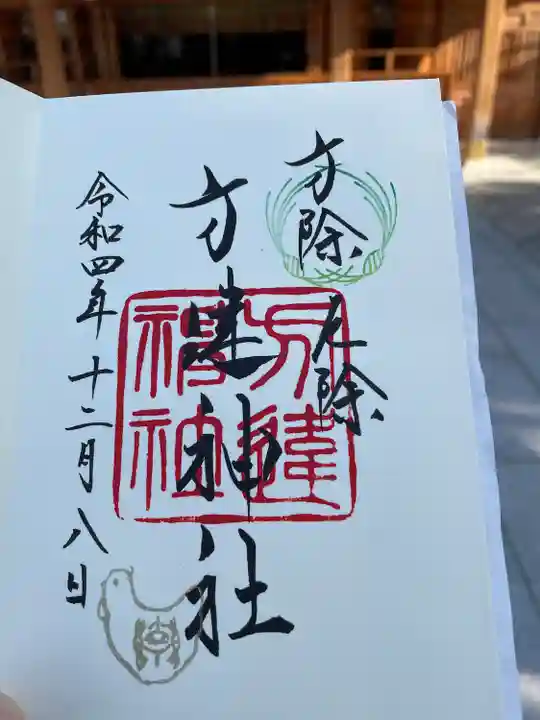 方除 厄除
方違神社
方違
神社
令和四年十二月八日